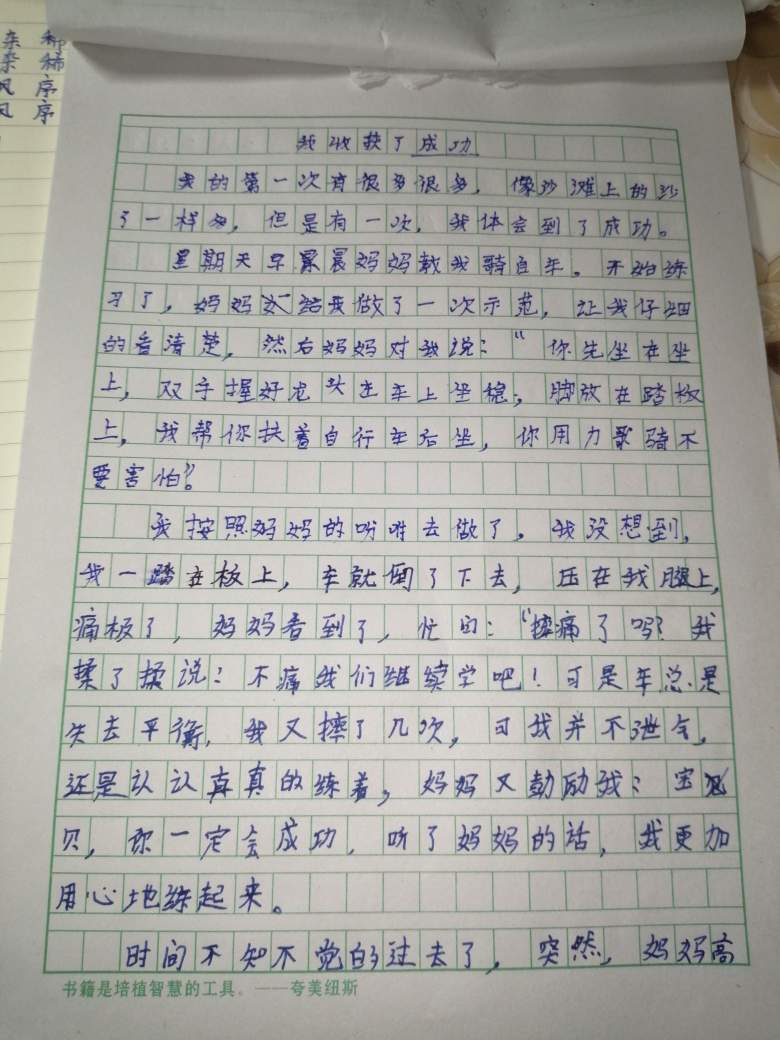 杂 稀
杂 稀
风 序
风 序
我收获了成功
我的第一次有很多很多，像沙滩上的沙
子一样多，但是有一次，我体会到了成功。
星期天早晨妈妈教我骑自车。开始练
习了，妈妈给我做了一次示范，让我仔细
的看清楚，然后妈妈对我说：“你先坐在坐
上，双手握好龙头在车上坐稳，脚放在踏板
上，我帮你扶着自行车后坐，你用力骑不
要害怕”。
我按照妈妈的吩咐去做了，我没想到，
我一踏在板上，车就倒了下去，压在我腿上，
痛极了，妈妈看到了，忙问：“摔痛了吗？我
揉了揉说：不痛我们继续学吧！可是车总是
失去平衡，我又摔了几次，可我并不泄气，
还是认认真真的练着，妈妈又鼓励我：宝
贝，你一定会成功，听了妈妈的话，我更加
用心地练起来。
时间不知不觉的过去了，突然，妈妈高
书籍是培植智慧的工具。——夸美纽斯